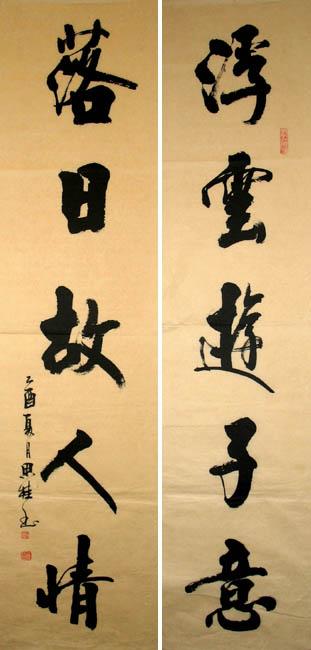 浮雲遊子意
落日故人情
乙酉夏月思桂书